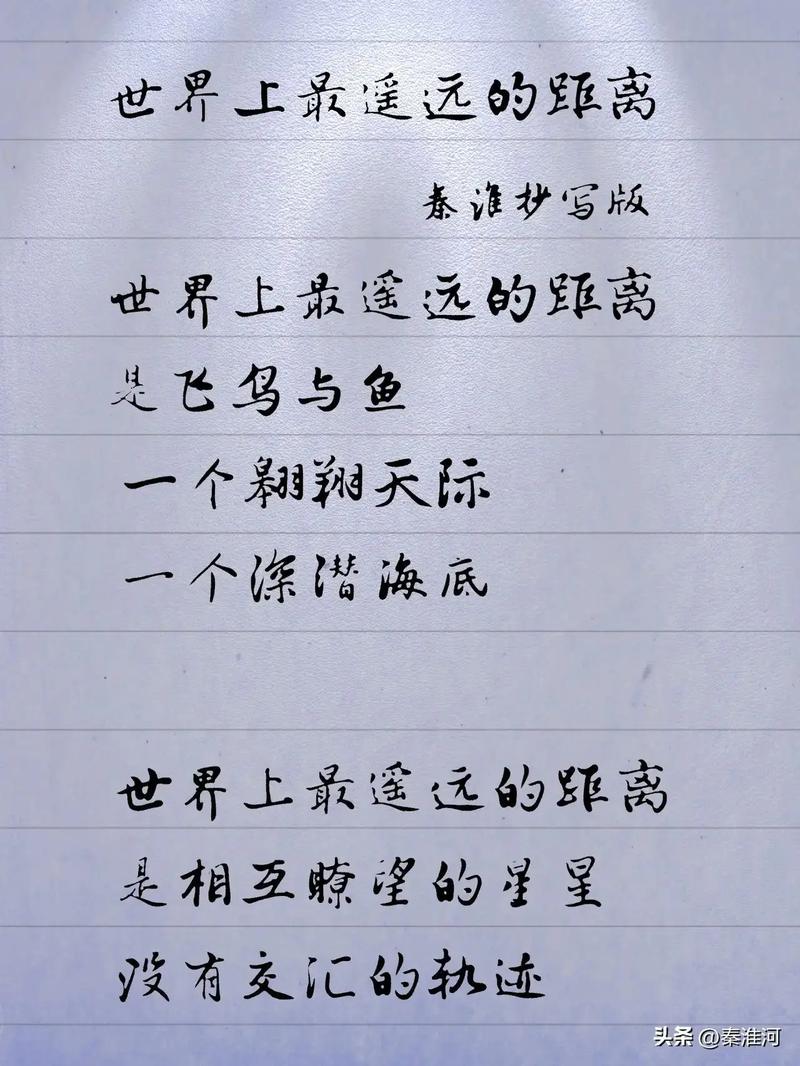 世界上最遥远的距离
秦淮抄写版
世界上最遥远的距离
是飞鸟与鱼
一个翱翔天际
一个深潜海底
世界上最遥远的距离
是相互瞭望的星星
没有交汇的轨迹
头条 @秦淮河